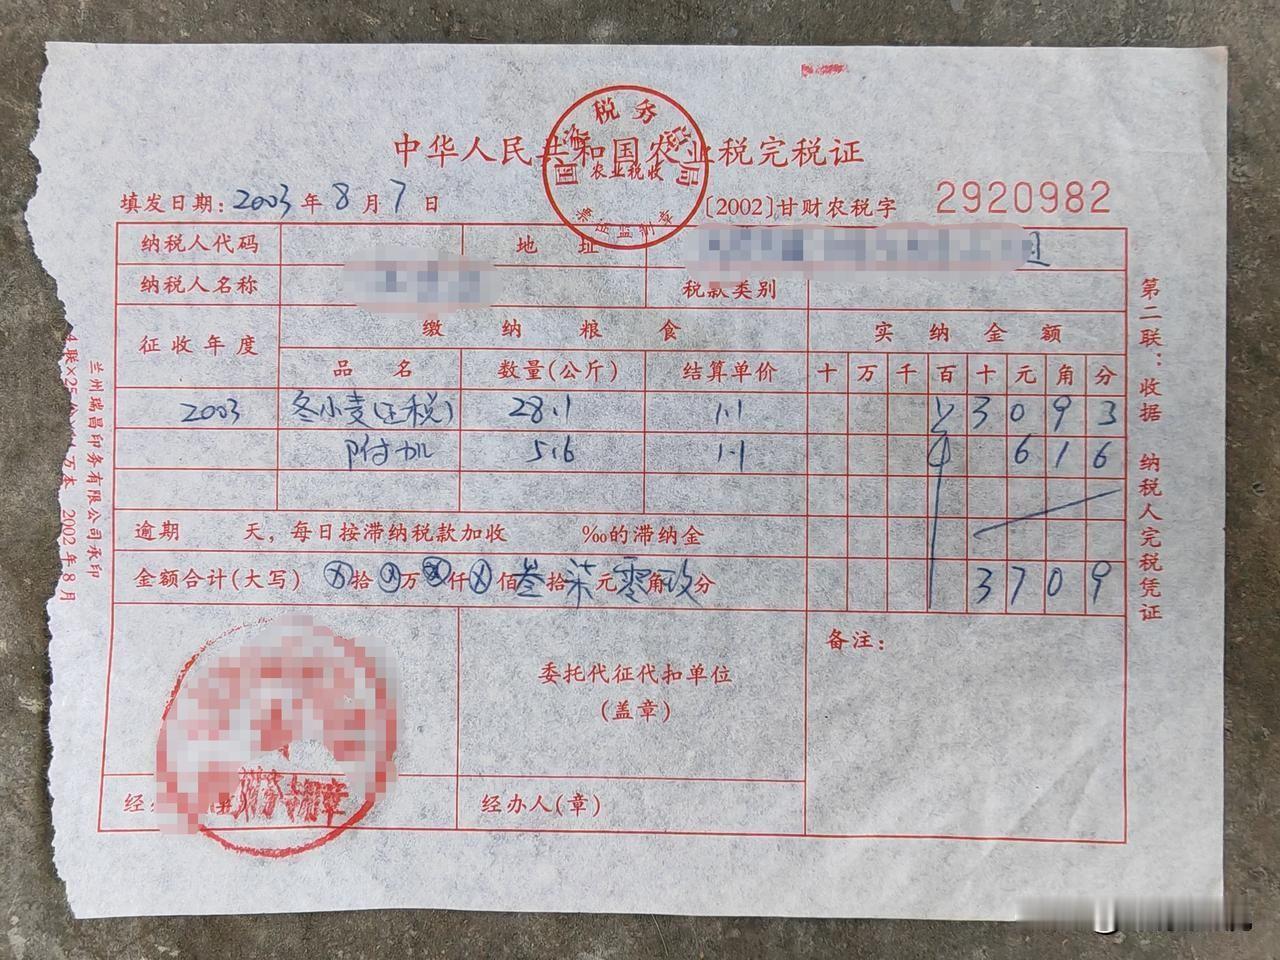 中华人民共和国农业税完税证
国家税务总局
农业税收
票证监制章
填发日期：2003年8月7日 [2002]甘财农税字 2920982
纳税人代码 地址
纳税人名称 税款类别
征收年度 缴纳粮食 实纳金额
品名 数量(公斤) 结算单价 十万千百十元角分
2003 冬小麦(正税) 28.1 1.1 ¥3093
附加 5.6 1.1 ¥616
逾期 天，每日按滞纳税款加收 ‰的滞纳金
金额合计(大写) ⊗拾⊗万⊗仟⊗佰叁拾柒元零角玖分 3709
委托代征代扣单位
(盖章)
备注：
经办
财务专用章
经办人(章)
第二联：收据 纳税人完税凭证
兰州瑞昌印务有限公司承印
4联×25 万本 2002年8月